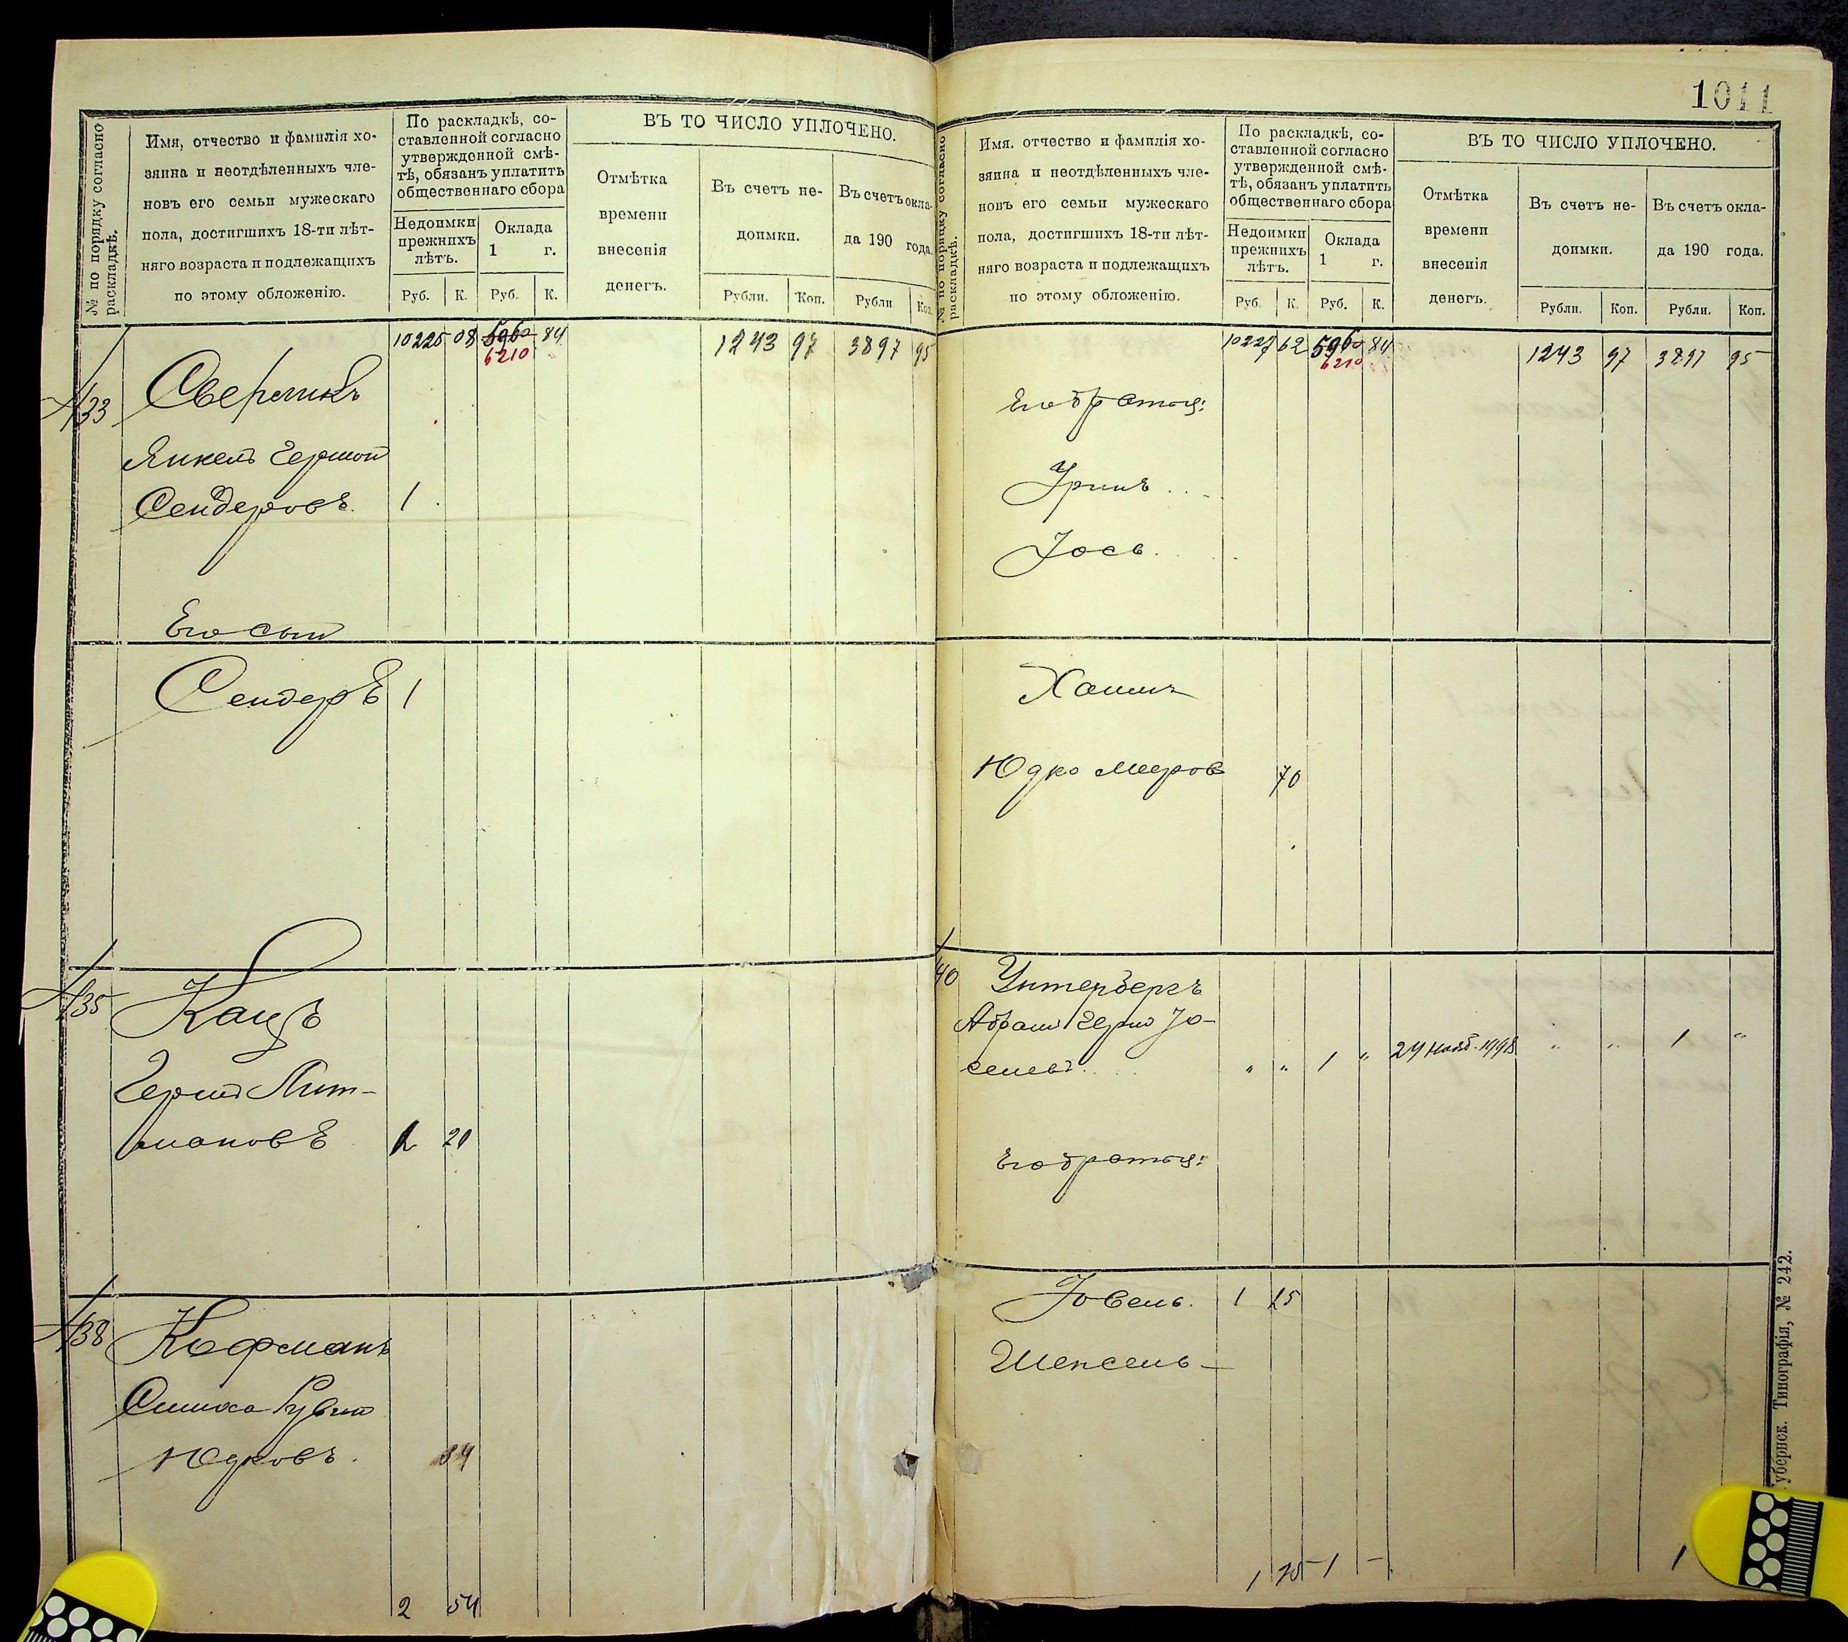 1011
№ по порядку согласно раскладкѣ.
Имя, отчество и фамилія хо-
зяина и неотдѣленныхъ чле-
новъ его семьи мужескаго
пола, достигшихъ 18-ти лѣт-
няго возраста и подлежащихъ
по этому обложенію.
По раскладкѣ, со-
ставленной согласно
утвержденной смѣ-
тѣ, обязанъ уплатить
общественнаго сбора
Недоимки
прежнихъ
лѣтъ.
Оклада
1 г.
Руб. К. Руб. К.
ВЪ ТО ЧИСЛО УПЛОЧЕНО.
Отмѣтка
времени
внесенія
денегъ.
Въ счетъ не-
доимки.
Въ счетъ окла-
да 190 года.
Рубли. Коп. Рубли Коп.
10225 08 5960 84 1243 97 3897 95
6210
133 Сверликъ
Янкель Гершон
Сендеровъ. 1
Его сын
Сендеръ 1
135 Кацъ
Герш Лит-
мановъ 1 20
138 Кофманъ
Симха Рувин
Юдковъ. 34
2 54
№ по порядку согласно раскладкѣ.
Имя, отчество и фамилія хо-
зяина и неотдѣленныхъ чле-
новъ его семьи мужескаго
пола, достигшихъ 18-ти лѣт-
няго возраста и подлежащихъ
по этому обложенію.
По раскладкѣ, со-
ставленной согласно
утвержденной смѣ-
тѣ, обязанъ уплатить
общественнаго сбора
Недоимки
прежнихъ
лѣтъ.
Оклада
1 г.
Руб. К. Руб. К.
ВЪ ТО ЧИСЛО УПЛОЧЕНО.
Отмѣтка
времени
внесенія
денегъ.
Въ счетъ не-
доимки.
Въ счетъ окла-
да 190 года.
Рубли. Коп. Рубли. Коп.
10227 62 5960 84 1243 97 3897 95
6210
Его братья:
Уринъ
Іось
Хаимъ
Юдко Мееров 70
140 Унтербергъ
Абрам Герш Іо-
селевъ " " 1 " 24 Нояб. " " 1 "
Его братья:
Іовель. 1 25
Шепсель
1 25 1 - 1
Губернск. Типографія, № 242.